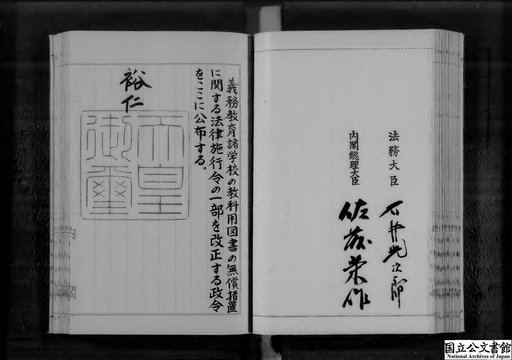 法務大臣
石井光次郎
内閣総理大臣
佐藤栄作
義務教育諸学校の教科用図書の無償措置
に関する法律施行令の一部を改正する政令
をここに公布する。
裕仁
天皇
御璽
国立公文書館
National Archives of Japan